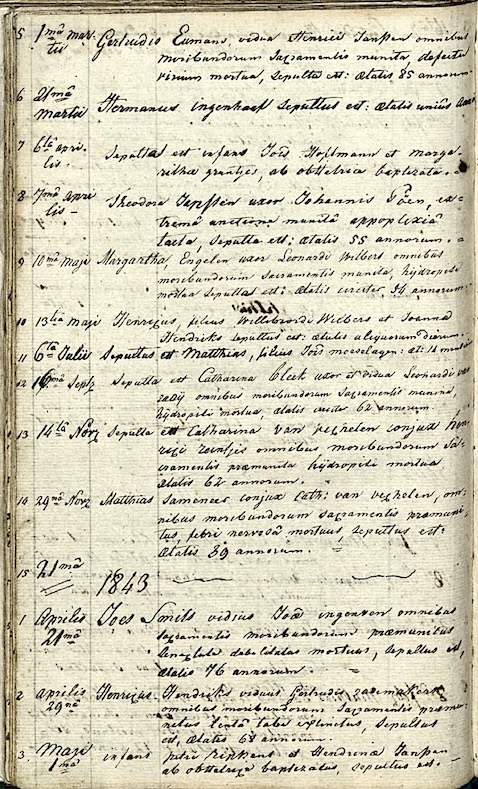 5 1ma mar- Gertrudis Eumans, vidua Henrici Janssen omnibus
tii moribundorum Sacramentis munita, defectu
virium mortua, sepulta est: ætatis 85 annorum.
6 21ma
Martii Hermanus ingenhaef sepultus est: ætatis unius
7 6ta apri- Sepulta est infans Jois Hoffmann et marga-
lis. rithæ ab obstetrice baptizata.
8 7ma apri Theodora Jepssen uxor Johannis ex-
lis - tremâ unctione munita appoplexiâ
tacta, sepulta est: ætatis 55 annorum.
9 10ma Maji Margartha, Engelen uxor Leonardi Wilbers omnibus
moribundorum Sacramentis munita, hydropisi
mortua sepulta est: ætatis circiter 54 annorum.
10 13tia Maji Henricus, filius Willebrordi Wilbers et Joanna
Hendriks sepultus est: ætatis aliquorum dierum.
11 6ta Julii Sepultus est Matthias, filius Jois moeselagen: æt: 18
12 16ma Septz Sepulta est Catharina Cleck uxor et vidua Leonardi van
omnibus moribundorum Sacramentis munina,
hydropisi mortua, ætatis circa 62 annorum.
13 14ta Novz Sepulta est Catharina van veghelen conjux hen-
rici reintjes omnibus moribundorum Sa-
cramentis præmunita hydropisi mortua
ætatis 62 annorum.
14 29na Novz Matthias Sameneer conjux Cath: van veghelen, om-
nibus moribundorum Sacramentis præmuni-
tus, febri nervosâ mortuus, sepultus est:
ætatis 39 annorum.
15 21mâ
1843
1 Aprilis Joes Smits viduus Joæ ingenven omnibus
21mâ Sacramentis moribundorum præmunitus
debilitatis mortuus, sepultus est,
ætatis 76 annorum.
2 aprilis Henricus Hendriks viduus Gertrudis rademakers
29na omnibus moribundorum Sacramentis præmu-
nitus lentâ tabe extinctus, sepultus
est, ætatis 68 annorum.
3. Maji infans petri Ripkens et Hendrinæ Janssen
1mâ ab obstetrice baptizatus, sepultus est.-